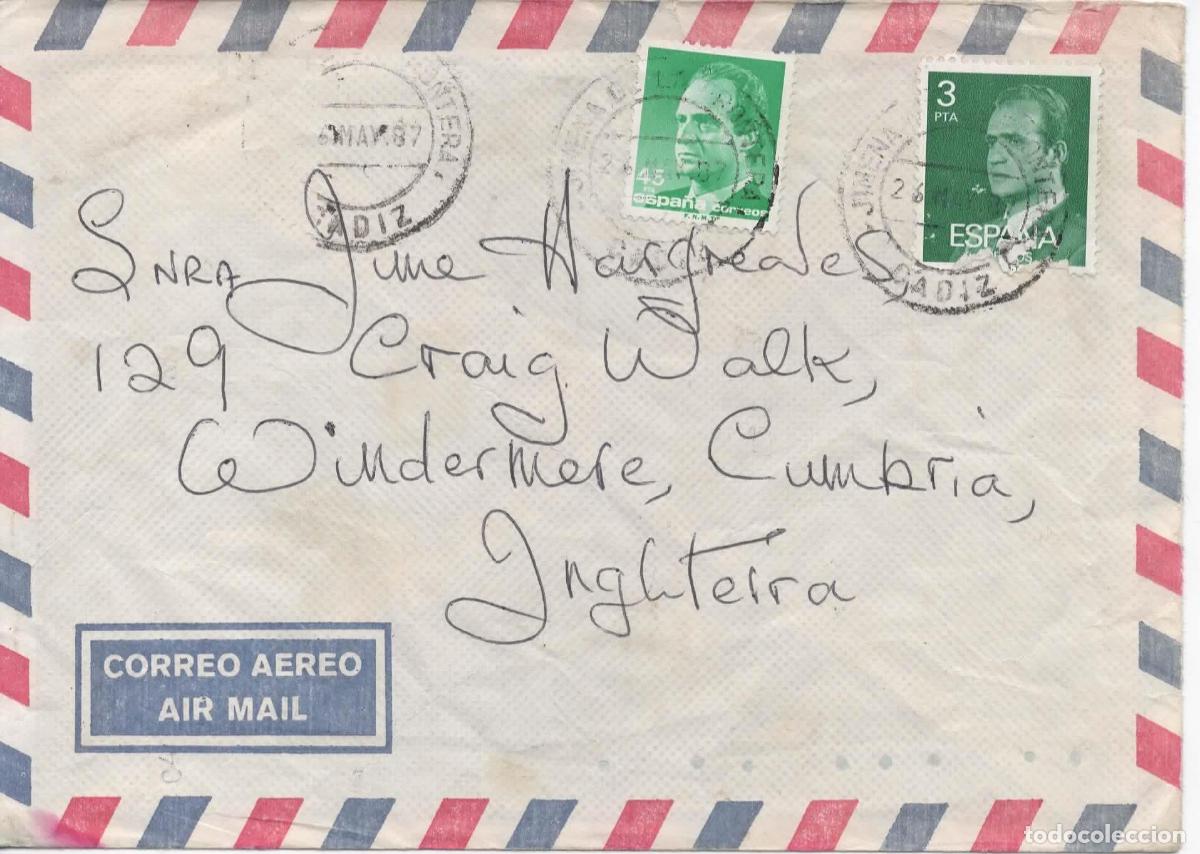 FRONTERA
6 MAY.87
CADIZ
JIMENA DE LA FRONTERA
45
PTS
españa correos
F.N.M.T.
3
PTA
ESPAÑA
JIMENA
CADIZ
SNRA June Hargreaves,
129 Craig Walk,
Windermere, Cumbria,
Inghterra
CORREO AEREO
AIR MAIL
todocoleccion